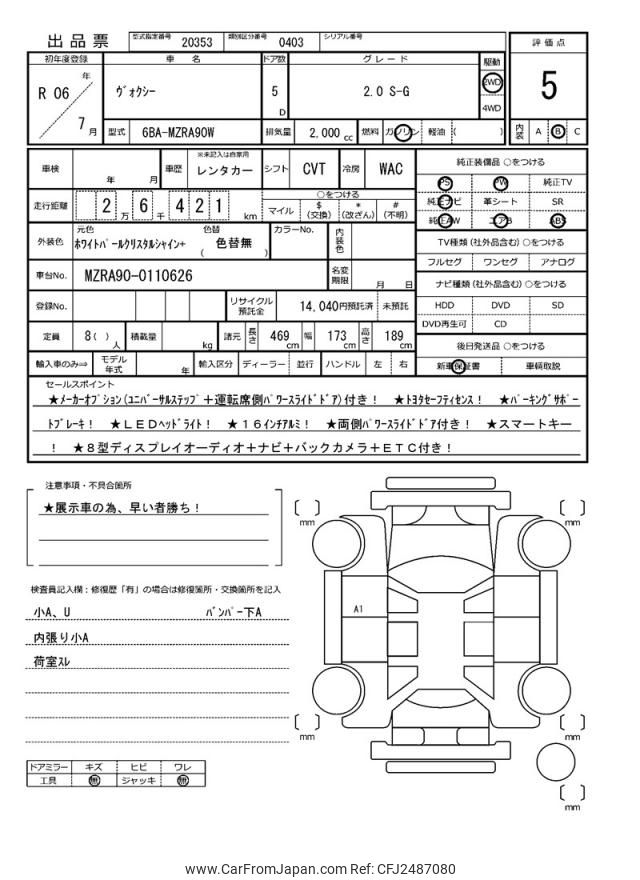 出品票
型式指定番号 20353 類別区分番号 0403 シリアル番号
評価点
5
内装 A B C
初年度登録 車名 ドア数 グレード 駆動
R 06 年 7 月
ヴォクシー
5 D
2.0 S-G
2WD
4WD
型式 6BA-MZRA90W 排気量 2,000 cc 燃料 ガソリン 軽油 ( )
車検 年 月 車歴 ※未記入は自家用 レンタカー シフト CVT 冷房 WAC
走行距離 2 万 6 千 4 2 1 km
○をつける
マイル $ (交換) * (改ざん) # (不明)
外装色 元色 ホワイトパールクリスタルシャイン+ 色替 ( 色替無 ) カラーNo. 内装色
車台No. MZRA90-0110626 名変期限 月 日
登録No. リサイクル預託金 14,040円預託済 未預託
定員 8( ) 人 積載量 kg 諸元 長さ 469 cm 幅 173 cm 高さ 189 cm
輸入車のみ⇒ モデル年式 年 輸入区分 ディーラー 並行 ハンドル 左 右
純正装備品 ○をつける
PS PW 純正TV
純正ナビ 革シート SR
純正AW エアB ABS
TV種類 (社外品含む) ○をつける
フルセグ ワンセグ アナログ
ナビ種類 (社外品含む) ○をつける
HDD DVD SD
DVD再生可 CD
後日発送品 ○をつける
新車保証書 車輌取説
セールスポイント
★メーカーオプション(ユニバーサルステップ+運転席側パワースライドドア)付き! ★トヨタセーフティセンス! ★パーキングサポー
トブレーキ! ★LEDヘッドライト! ★16インチアルミ! ★両側パワースライドドア付き! ★スマートキー
! ★8型ディスプレイオーディオ+ナビ+バックカメラ+ETC付き!
注意事項・不具合箇所
★展示車の為、早い者勝ち!
検査員記入欄:修復歴「有」の場合は修復箇所・交換箇所を記入
小A、U バンパー下A
内張り小A
荷室スレ
mm
mm
A1
mm
mm
mm
ドアミラー キズ ヒビ ワレ
工具 無 ジャッキ 無
www.CarFromJapan.com Ref: CFJ2487080